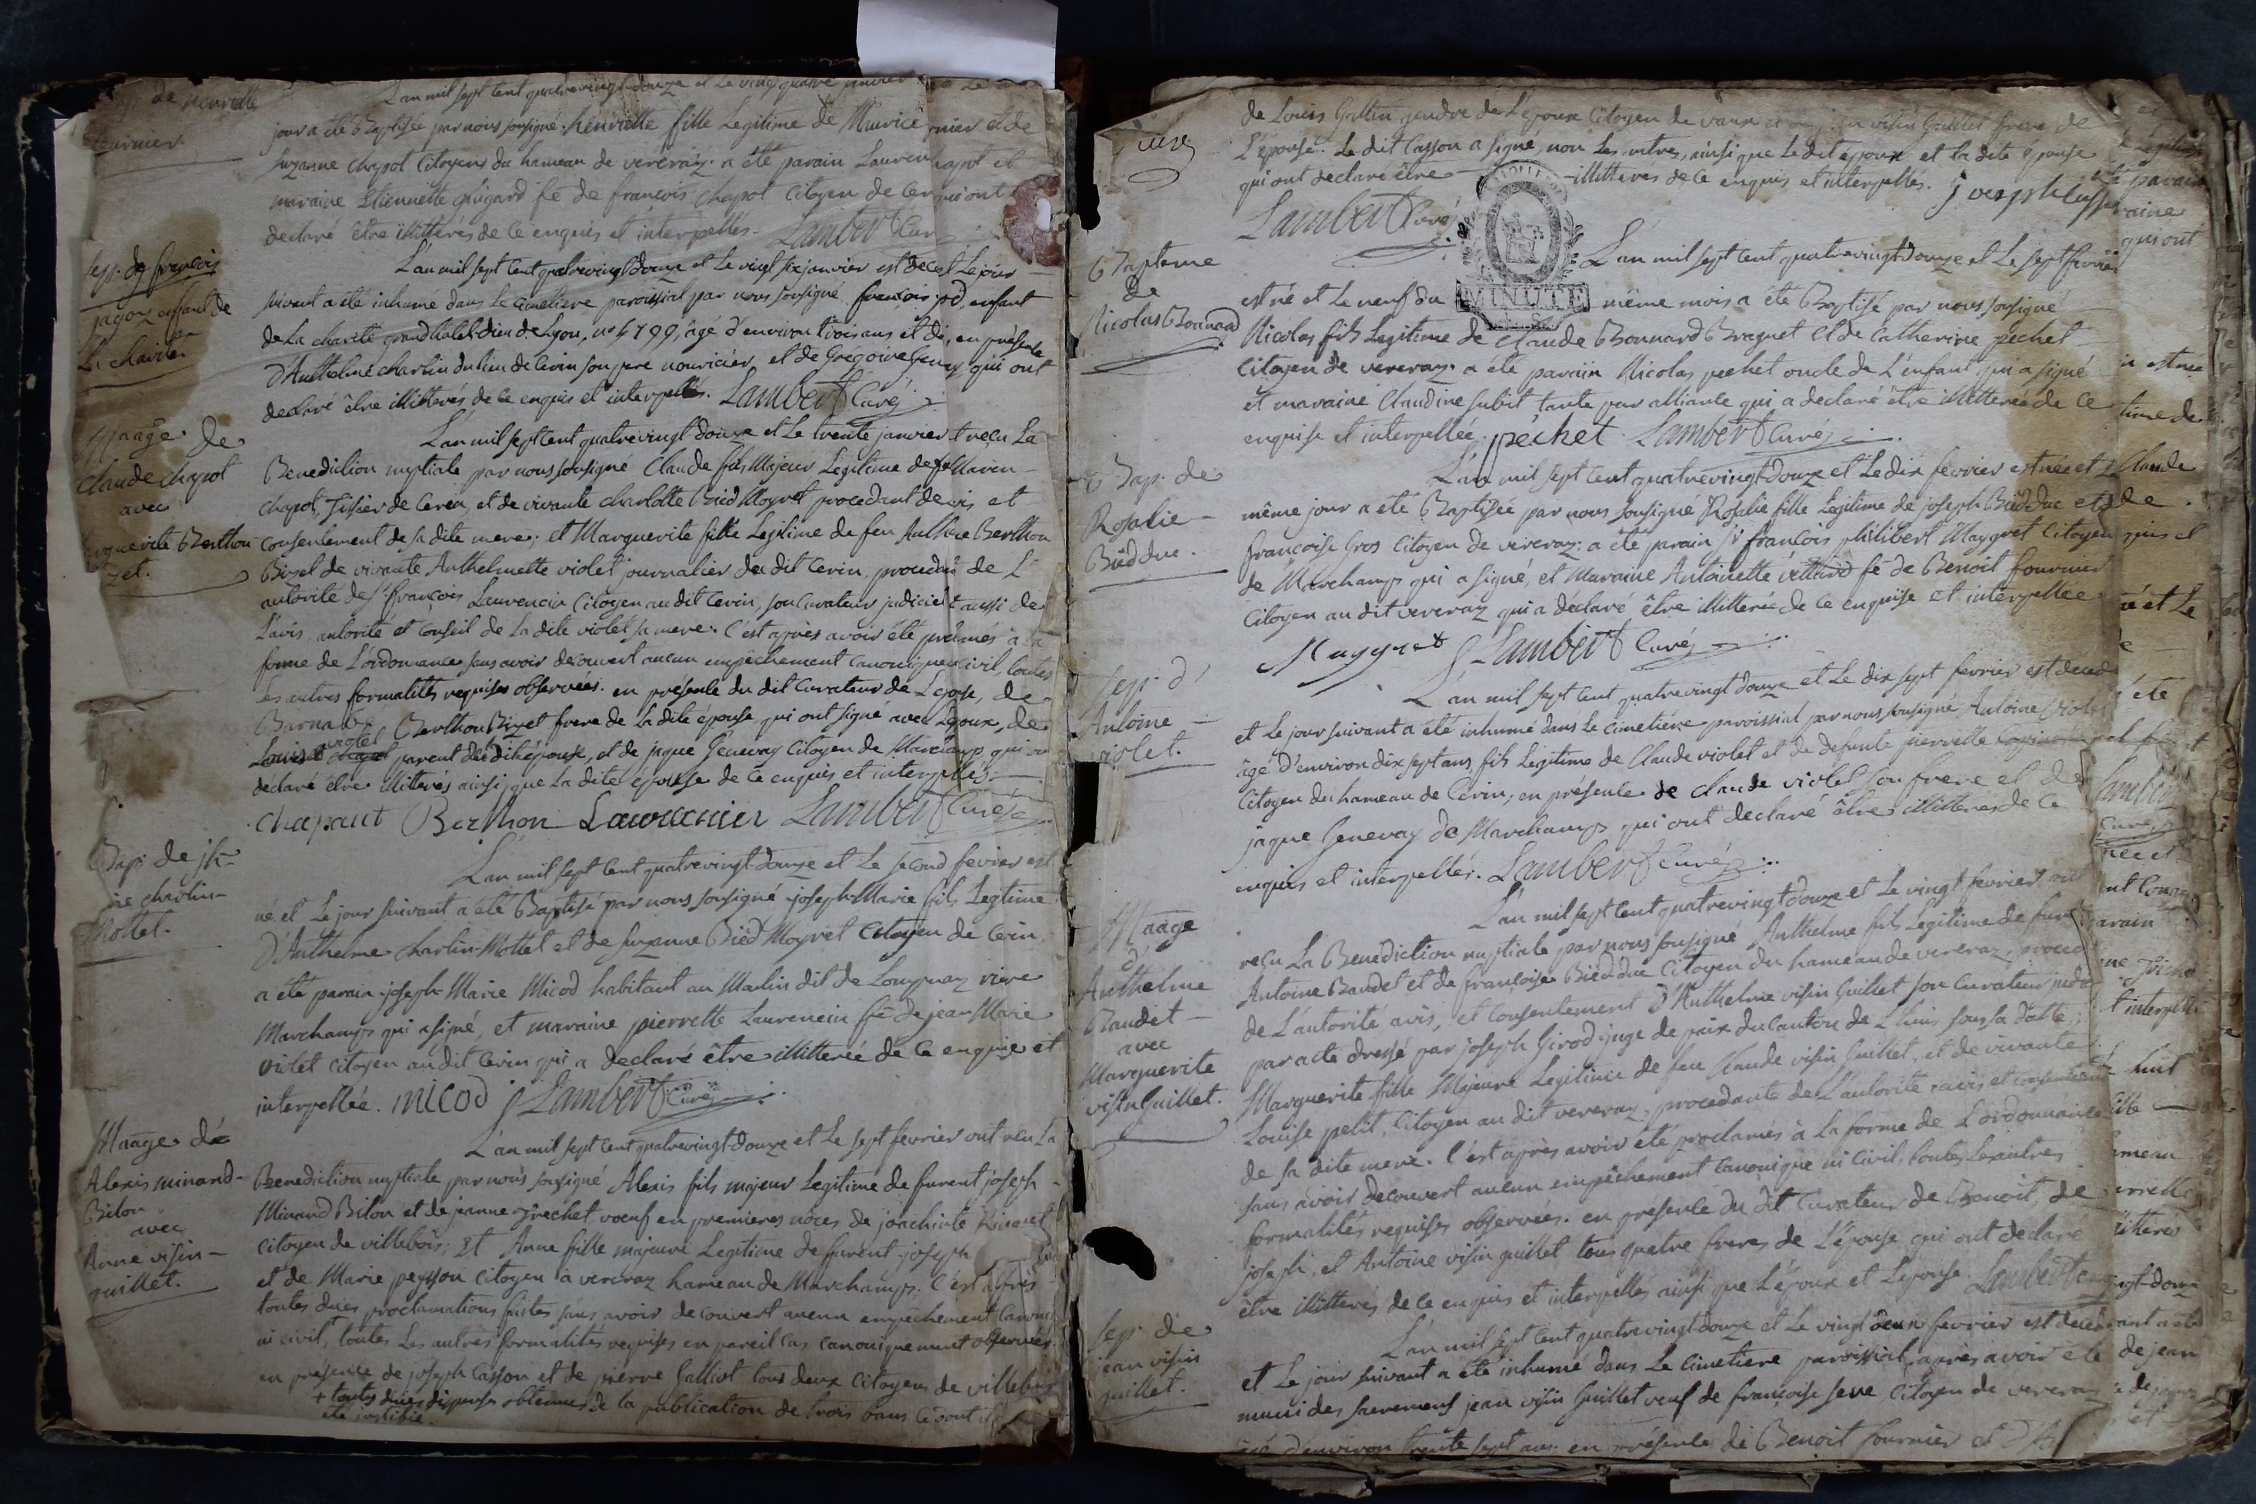 Bap. de henriette
fournier.
L'an mil sept cent quatrevingt douze et Le vingt quatre janvier
jour a été Baptisée par nous sousigné henriette fille Legitime de Maurice et de
suzanne chapot Citoyens du hameau de vereraz. a été parain Lauren chapot et
maraine Etiennette fe de françois chapot Citoyen de Cerin qui ont
declaré être illitterés de ce enquis et interpellés. Lambert Curé
sep. de françois
enfant de
La charité
L'an mil sept cent quatrevingt douze et Le vingt six janvier est decedé Le jour
suivant a été inhumé dans Le cimetiere paroissial par nous sousigné françois enfant
de La charité grand hotel dieu de Lyon, no 4799, agé d'environ trois ans et di, en présence
d'Anthelme charlin du lieu de Cerin son pere nouricier, et de Gregoire Genevay qui ont
declaré être illitterés de ce enquis et interpellés. Lambert Curé
Maage de
Claude chapot
avec
Marguerite Berthon
L'an mil sept cent quatrevingt douze et Le trente janvier ont reçu La
Benediction nuptiale par nous sousigné Claude fils Majeur Legitime de feu Marin
chapot, Tissier de Cerin, et de vivante charlotte Bied Moyret procedant de avis et
consentement de sa dite mere; et Marguerite fille Legitime de feu Anthelme Berthon
Bizet de vivante Anthelmette violet journalier du dit Cerin, procedant de L'
autorité de Sr françois Laurencin Citoyen au dit Cerin, son Curateur judiciel et aussi de
L'avis autorité et conseil de La dite violet sa mere. C'est après avoir été proclamés à la
forme de L'ordonnance sans avoir decouvert aucun empêchement canonique ni civil, toutes
les autres formalités requises observées. en présence du dit Curateur de L'epouse, de
Barnabé Berthon Bizet frere de La dite épouse qui ont signé avec L'epoux, de
Louis violet parent du dit épouse, et de jaque Genevay Citoyen de Marchamp, qui ont
declaré être illitterés ainsi que La dite épouse de ce enquis et interpellés.
chapaut Berthon Laurancin Lambert Curé
Bap. de jh
charlin
Mottet.
L'an mil sept cent quatrevingt douze et Le second fevrier est
né et Le jour suivant a été Baptisé par nous sousigné joseph Marie fils Legitime
D'Anthelme charlin Mottet et de suzanne Bied Moyret Citoyen de Cerin,
a été parain joseph Marie Micod habitant au Moulin dit de Lougnaz riere
Marchamp qui a signé, et maraine pierrette Laurencin fe de jean Marie
violet Citoyen au dit Cerin qui a declaré être illitterée de ce enquise et
interpellée. micod Lambert Curé
Maage de
Alexis minand
Bilon
avec
Anne visin
guillet.
L'an mil sept cent quatrevingt douze et Le sept fevrier ont reçu La
Benediction nuptiale par nous sousigné Alexis fils majeur Legitime de furent joseph
Minand Bilon et de jeanne veuf en premieres nôces de joachinte
Citoyen de villebois; Et Anne fille majeure Legitime de furent joseph
et de Marie peysson Citoyen à vereraz hameau de Marchamp. C'est après
toutes dües proclamations faites sans avoir decouvert aucun empêchement canonique
ni civil, + toutes Les autres formalités requises en pareil cas canoniquement observées.
en présence de joseph Casson et de pierre Galliot tous deux Citoyens de villebois
+ toutes dües dispenses obtenues de la publication de trois bans ce dont il
été justifié
de Louis Gallin gendre de L'epoux Citoyen de vaux visin Guillet frere de
L'épouse. Le dit Casson a signé, non Les autres, ainsi que Le dit epoux et La dite épouse
qui ont declaré être illitterés de ce enquis et interpellés. joseph Casson
Lambert Curé
MINUTE
Bapteme
de
Nicolas Bonnard
L'an mil sept cent quatrevingt douze et Le sept fevrier
est né et Le neuf du même mois a été Baptisé par nous sousigné
Nicolas fils Legitime de Claude Bonnard Braguet et de Catherine pechet
Citoyen de vereraz. a été parain Nicolas pechet oncle de L'enfant qui a signé
et maraine Claudine subit tante par alliance qui a declaré être illitterée de ce
enquise et interpellée. péchet Lambert Curé
Bap. de
Rosalie
Biedduc.
L'an mil sept cent quatrevingt douze et Le dix fevrier est née et Le
même jour a été Baptisée par nous sousigné Rosalie fille Legitime de joseph Biedduc et de
françoise Gros Citoyen de vereraz: a été parain Sr françois philibert Maygret Citoyen
de Marchamp qui a signé, et Maraine Antoinette villard fe de Benoit fournier
Citoyen au dit vereraz qui a declaré être illitterée de ce enquise et interpellée
Maygret Lambert Curé
sep. d'
Antoine
violet.
L'an mil sept cent quatrevingt douze et Le dix sept fevrier est decedé
et Le jour suivant a été inhumé dans Le cimetiere paroissial par nous sousigné Antoine violet
âgé d'environ dix sept ans fils Legitime de Claude violet et de defunte pierrette
Citoyen du hameau de Cerin, en présence de claude violet son frere et de
jaque Genevay de Marchamp qui ont declaré être illitterés de ce
enquis et interpellés. Lambert Curé
Maage
d'
Anthelme
Baudet
avec
Marguerite
visin Guillet.
L'an mil sept cent quatrevingt douze et Le vingt fevrier ont
reçu La Benediction nuptiale par nous sousigné, Anthelme fils Legitime de furent
Antoine Baudet et de françoise Biedduc Citoyen du hameau de vereraz, proced
de L'autorité avis, et consentement d'Anthelme visin Guillet son Curateur
par acte dressé par joseph Girod juge de paix du Canton de L'huis sous sa datte;
Marguerite fille Majeure Legitime de feu Claude visin Guillet, et de vivante
Louise petit, Citoyen au dit vereraz, procedante de L'autorité avis et consentement
de sa dite mere. C'est après avoir été proclamés à La forme de L'ordonnance
sans avoir decouvert aucun empêchement canonique ni civil, toutes Les autres
formalités requises observées. en présence du dit Curateur de Benoit, de
joseph, et Antoine visin guillet tous quatre freres de L'épouse qui ont declaré
être illitterés de ce enquis et interpellés ainsi que L'époux et L'epouse Lambert Curé
sep. de
jean visin
guillet.
L'an mil sept cent quatrevingt douze et Le vingt deux fevrier est decedé
et Le jour suivant a été inhumé dans Le cimetiere paroissial, après avoir été
muni des sacremens jean visin Guillet veuf de françoise seve Citoyen de vereraz
âgé d'environ trente sept ans en présence de Benoit fournier et